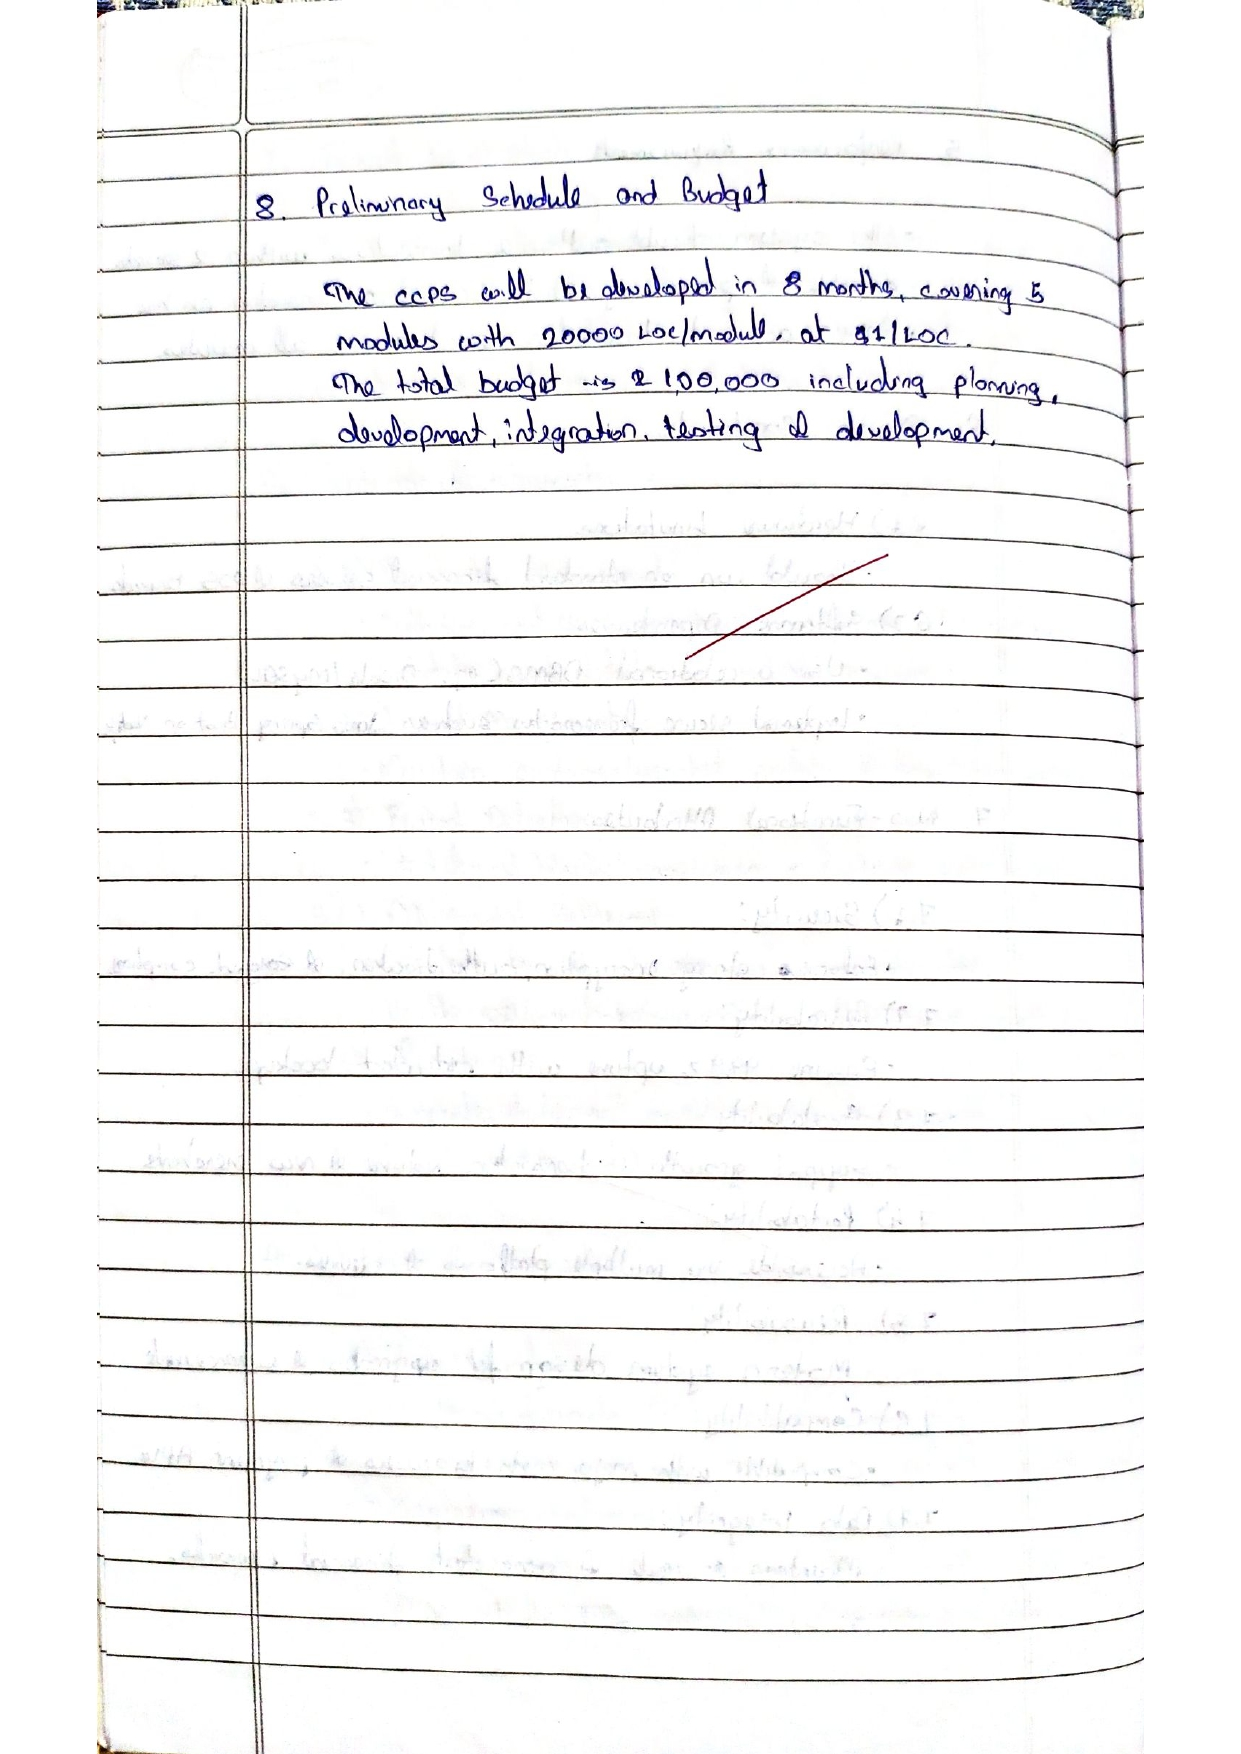 8. Preliminary Schedule and Budget
The CCPS will be developed in 8 months, covering 5
modules with 20000 LOC/module, at $1/LOC.
The total budget is 1,00,000 including planning,
development, integration, testing & development.